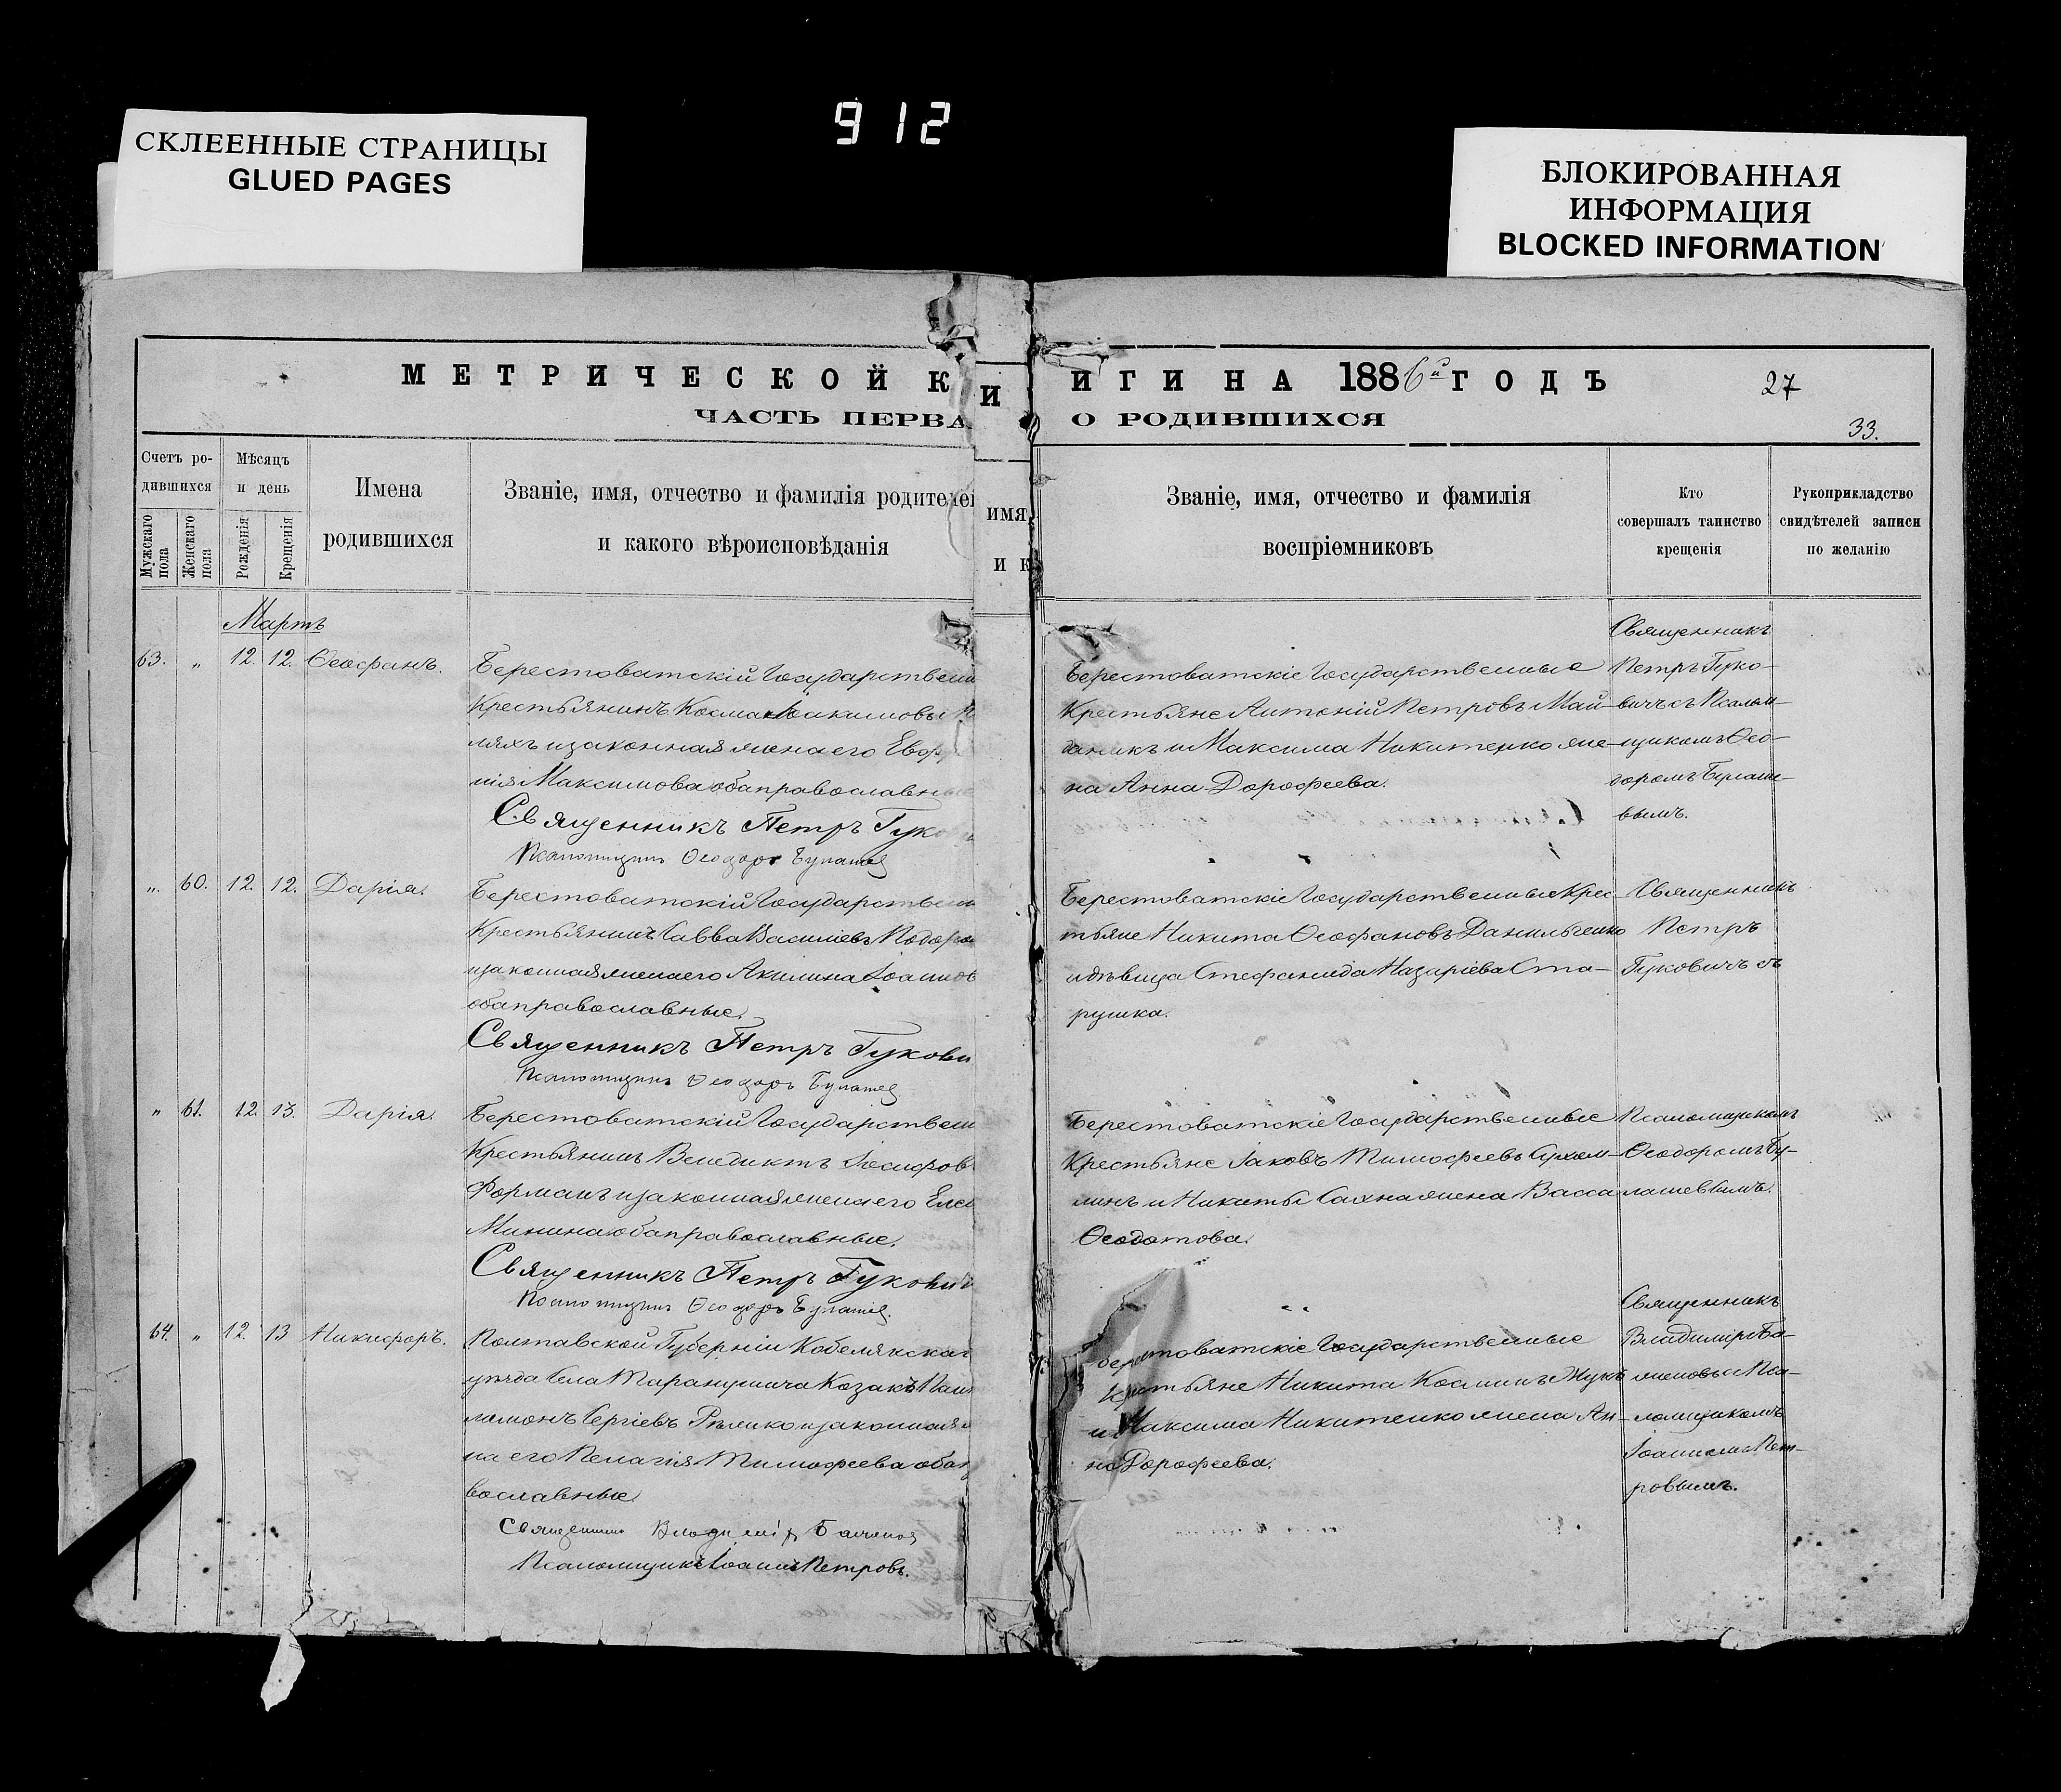 912
СКЛЕЕННЫЕ СТРАНИЦЫ
GLUED PAGES
БЛОКИРОВАННАЯ
ИНФОРМАЦИЯ
BLOCKED INFORMATION
МЕТРИЧЕСКОЙ К
И
ИГИ НА 1886й ГОДЪ
27
ЧАСТЬ ПЕРВА
О РОДИВШИХСЯ
33.
Счетъ ро-
дившихся
Мужскаго пола
Женскаго пола
Мѣсяцъ
и день
Рожденія
Крещенія
Имена
родившихся
Званіе, имя, отчество и фамилія родителе
и какого вѣроисповѣданія
имя,
и к
Званіе, имя, отчество и фамилія
воспріемниковъ
Кто
совершалъ таинство
крещенія
Рукоприкладство
свидѣтелей записи
по желанію
Мартъ
63. „ 12. 12. Ѳеофанъ.
Берестоватскій Государствен
Крестьянинъ Косма Іоакимовъ
ляхъ и законная жена его Евф
нія Максимова оба православны
Священникъ Петръ Гуко
Псаломщикъ Ѳеодоръ Булаше
Берестоватскіе Государственные
Крестьяне Антоній Петровъ Май-
даникъ и Максима Никитенко же-
на Анна Дорофеева.
Священникъ
Петръ Гуко-
вичъ съ Псалом-
щикомъ Ѳео-
доромъ Булаше-
вымъ.
„ 60. 12. 12. Дарія.
Берестоватскій Государствен
Крестьянинъ Савва Василіевъ Подор
и законная жена его Акилина Іоаннов
оба православные.
Священникъ Петръ Гукови
Псаломщикъ Ѳеодоръ Булаше
Берестоватскіе Государственные Крес-
тьяне Никита Ѳеофановъ Данильченко
и дѣвица Стефанида Назаріева Ста-
рушка.
Священникъ
Петръ
Гуковичъ съ
„ 61. 12. 13. Дарія.
Берестоватскій Государствен
Крестьянинъ Венедиктъ Іосифов
Форманъ и законная жена его Еле
Минина оба православные.
Священникъ Петръ Гукович
Псаломщикъ Ѳеодоръ Булаше
Берестоватскіе Государственные
Крестьяне Іаковъ Тимофеевъ
и Никиты Сахна жена Васса
Ѳеодотова.
Псаломщикомъ
Ѳеодоромъ Бу-
лашевымъ.
64. „ 12. 13 Никифоръ.
Полтавской Губерніи Кобелякскаг
уѣзда Села Козакъ Пан
лимонъ Сергіевъ и законная
на его Пелагія Тимофеева оба
вославные
Священникъ Владиміръ
Псаломщикъ Іоаннъ Петровъ.
Берестоватскіе Государственные
Крестьяне Никита Косминъ Жукъ
и Максима Никитенко жена Ан-
на Дорофеева.
Священникъ
Владиміръ Ба-
съ Пса-
ломщикомъ
Іоанномъ Пет-
ровымъ.